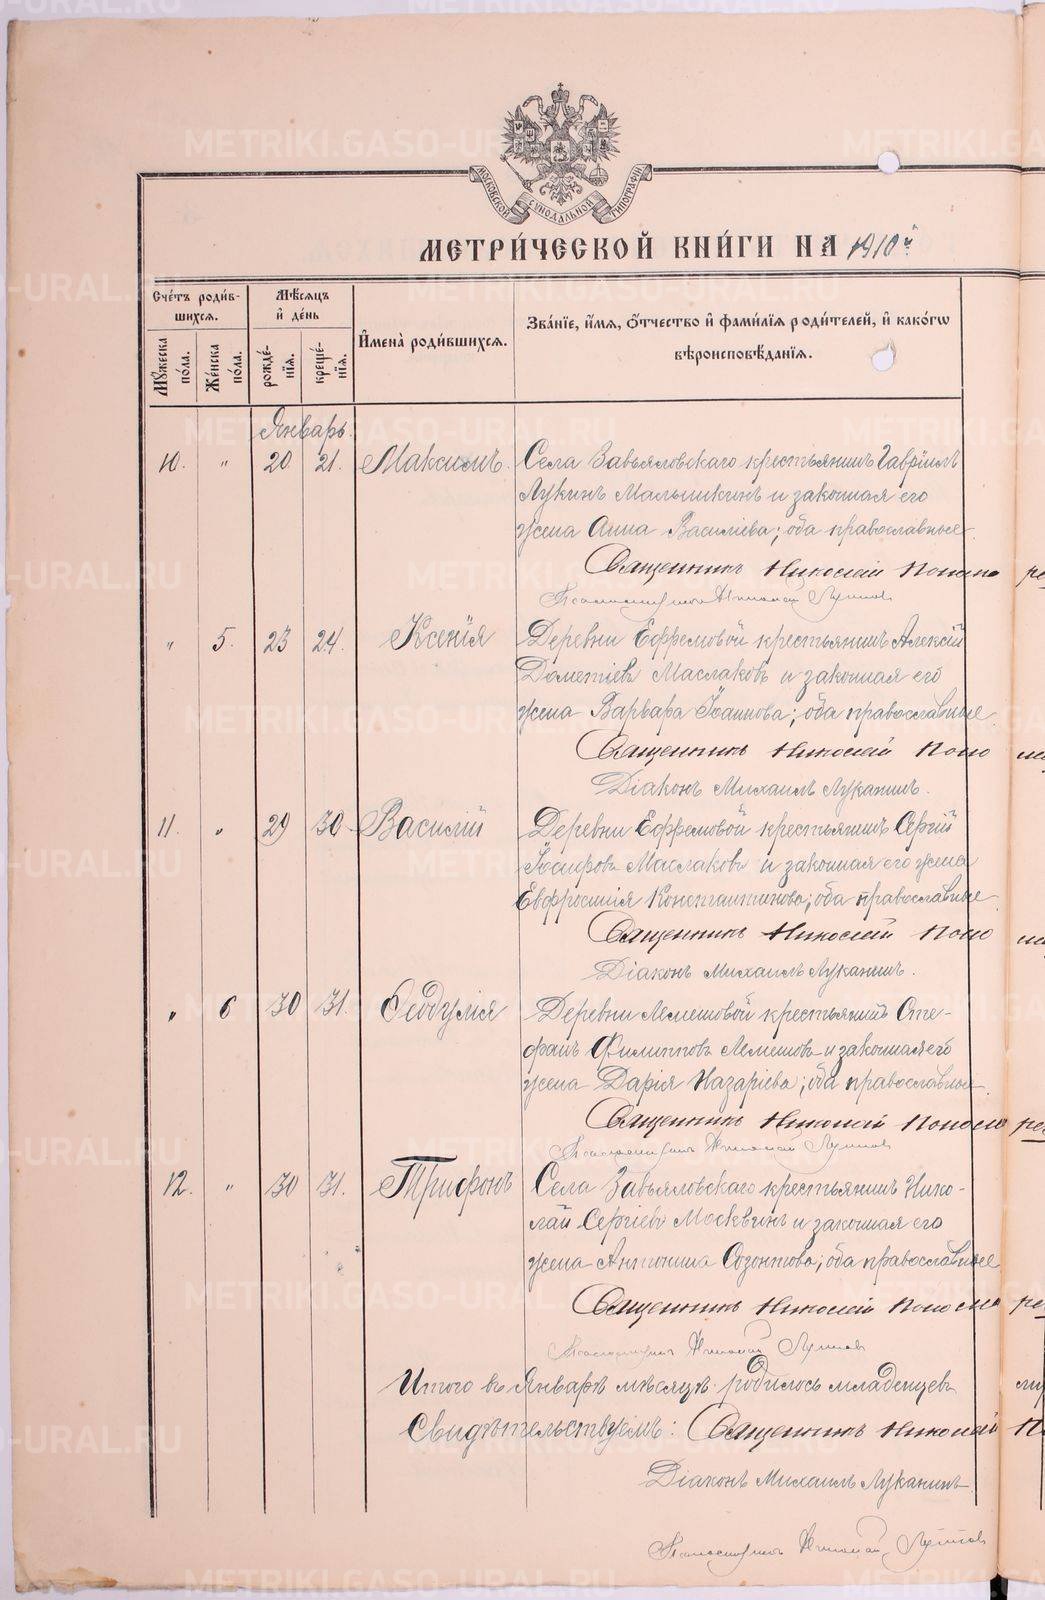 МОСКОВСКОЙ СѴНОДАЛЬНОЙ ТИПОГРАФІИ
МЕТРИ́ЧЕСКОЙ КНИ́ГИ НА 1910й
Счётъ роди́вшихся.
Мѣ́сяцъ и҆ де́нь
И҆мена̀ роди́вшихся.
Зва́нїе, и҆́мя, ѻ҆́тчество и҆ фами́лїя роди́телей, и҆ како́гѡ
вѣроисповѣ́данїя.
Мꙋ́жеска по́ла.
Же́нска по́ла.
рожде́нїя.
креще́нїя.
Январь.
10. " 20 21. Максимъ. Села Завьяловскаго крестьянинъ Гавріилъ
Лукинъ Малышкинъ и законная его
жена Анна Василіева; оба православные.
Священникъ Николай Понома
Псаломщикъ Николай
" 5. 23 24. Ксенія Деревни Ефремовой крестьянинъ Алексій
Дометіевъ Маслаковъ и законная его
жена Варвара Іоаннова; оба православные.
Священникъ Николай Поно
Діаконъ Михаилъ Луканинъ.
11. " 29 30. Василій Деревни Ефремовой крестьянинъ Сергій
Іосифовъ Маслаковъ и законная его жена
Евфросинія Константинова; оба православные
Священникъ Николай Поно
Діаконъ Михаилъ Луканинъ.
" 6 30 31. Ѳеодулія Деревни Лемешовой крестьянинъ Сте-
фанъ Филипповъ Лемешовъ и законная его
жена Дарія Назаріева; оба православные
Священникъ Николай Пономаре
Псаломщикъ Николай
12. " 30 31. Трифонъ Села Завьяловскаго крестьянинъ Нико-
лай Сергіевъ Москвинъ и законная его
жена Антонина Созонтова; оба православные
Священникъ Николай Понома ре
Псаломщикъ Николай
Итого въ Январѣ мѣсяцѣ родилось младенцевъ
Свидѣтельствуемъ: Священникъ Николай П
Діаконъ Михаилъ Луканинъ
Псаломщикъ Николай
METRIKI.GASO-URAL.RU